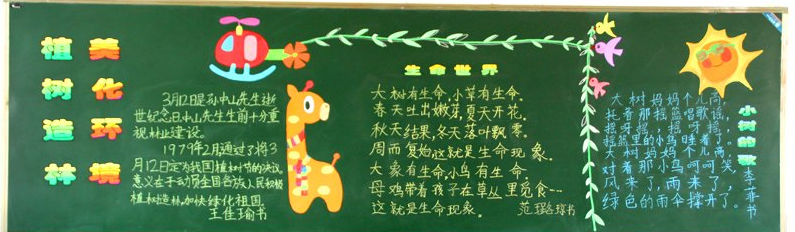 植树造林
美化环境
3月12日是孙中山先生逝
世纪念日,中山先生生前十分重
视林业建设。
1979年2月通过了将3
月12日定为我国植树节的决议,
意义在于动员全国各族人民积极
植树造林,加快绿化祖国。
王佳瑜书
生命世界
大树有生命,小草有生命。
春天吐出嫩芽,夏天开花,
秋天结果,冬天落叶飘零。
周而复始,这就是生命现象。
大象有生命,小鸟有生命。
母鸡带着孩子在草丛里觅食……
这就是生命现象。
书
小树的歌
大树妈妈个儿高,
托着那摇篮唱歌谣,
摇呀摇,摇呀摇,
摇篮里的小鸟睡着了。
大树妈妈个儿高,
对着那小鸟呵呵笑,
风来了,雨来了,
绿色的雨伞撑开了。
李菲书